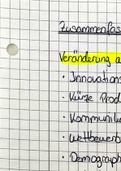 Zusammenfas
Veränderung a
• Innovations
• Kürze Prod
• Kommunika
• Wettbewerb
• Demograph